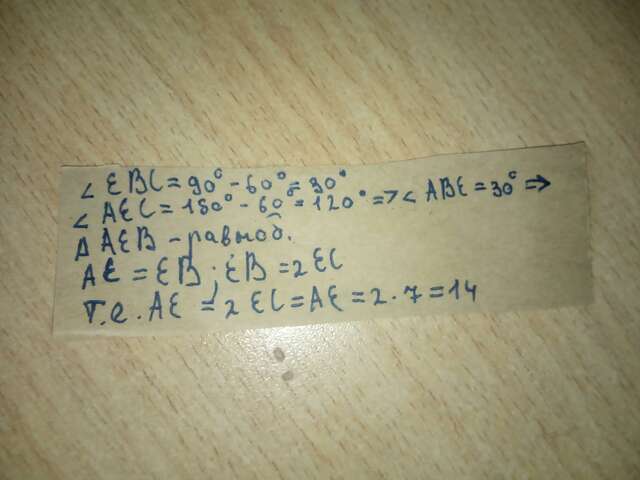 ∠ EBC = 90° - 60° = 30°
∠ AEC = 180° - 60° = 120° => ∠ ABE = 30° =>
Δ AEB - равноб.
AE = EB ; EB = 2 EC
т.е. AE = 2 EC = AE = 2 · 7 = 14